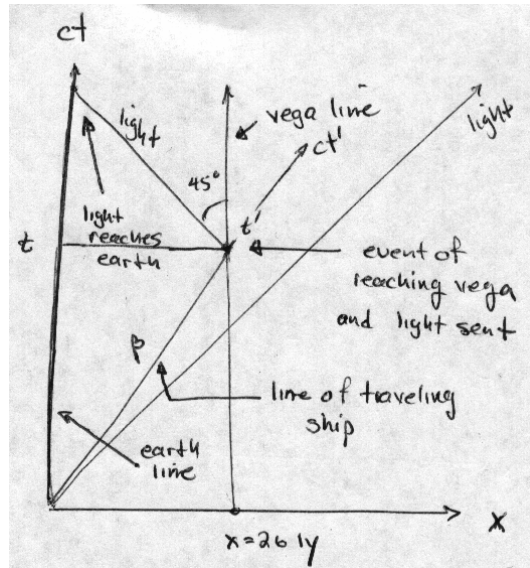 ct
light
vega line
ct'
light
45°
light
reaches
earth
t
t'
event of
reaching vega
and light sent
β
line of traveling
ship
earth
line
x
x=26 ly